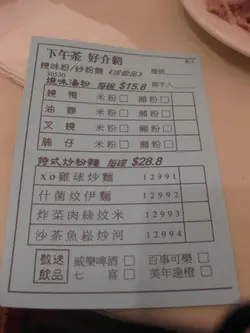 下午茶 好介紹
燒味粉/炒粉麵
30530
燒味湯粉 每碗 $15.8
燒鴨 米粉□ 瀨粉□
油雞 米粉□ 瀨粉□
叉燒 米粉□ 瀨粉□
腩仔 米粉□ 瀨粉□
特式炒粉麵 每碟 $28.8
xo雞球炒麵 12991
什菌炆伊麵 12992
炸菜肉絲炆米 12993
沙茶魚崧炒河 12994
歡送飲品
威樂啤酒□ 百事可樂□
七喜□ 美年達橙□